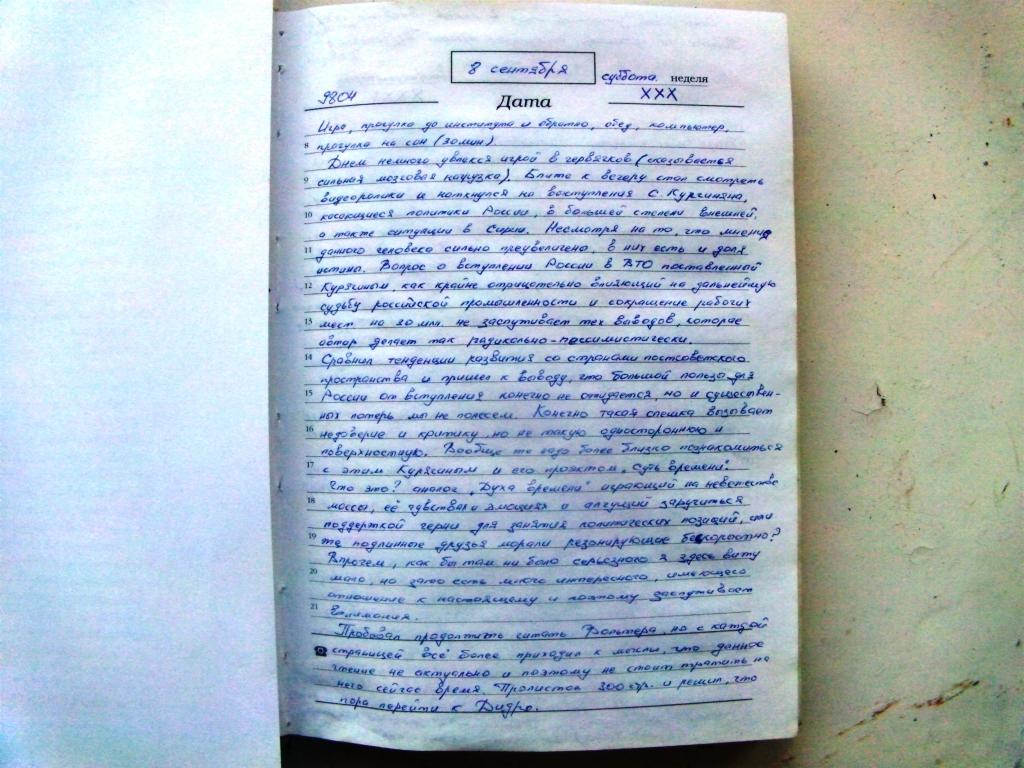 8 сентября
суббота неделя
9804
Дата
XXX
Игра, прогулка до института и обратно, обед, компьютер,
8 прогулка на сон (30 мин)
Днем немного увлекся игрой в червячков (сказывается
9 сильная мозговая нагрузка). Ближе к вечеру стал смотреть
видеоролики и наткнулся на выступления С. Кургиняна,
10 касающиеся политики России, в большей степени внешней,
а также ситуации в Сирии. Несмотря на то, что мнения
11 данного человека сильно преувеличена, в них есть и доля
истины. Вопрос о вступлении России в ВТО поставленный
12 Курягиным, как крайне отрицательно влияющий на дальнейшую
судьбу российской промышленности и сокращение рабочих
13 мест на 20 млн. не заслуживает тех выводов, которые
автор делает так радикально-пессимистически.
14 Сравнил тенденции развития со странами постсоветского
пространства и пришел к выводу, что большой пользы для
15 России от вступления конечно не ожидается, но и существен-
ных потерь мы не понесем. Конечно такая спешка вызывает
16 недоверие и критику, но не такую одностороннюю и
поверхностную. Вообще же надо более близко познакомиться
17 с этим Курягиным и его проэктом „Суть времени".
Что это? аналог „Духа времени" играющий на невежестве
18 массы, её чувствах и эмоциях и алчущий заручиться
поддержкой черни для занятия политических позиций, или
19 же подлинные друзья морали резонирующие бескорыстно?
Впрочем, как бы там ни было серьезного я здесь вижу
20 мало, но зато есть много интересного, имеющего
отношение к настоящему и поэтому заслуживает
21 внимания.
Пробовал продолжить читать Вольтера, но с каждой
страницей всё более приходил к мысли, что данное
чтение не актуально и поэтому не стоит тратить на
него сейчас время. Пролистав 300 стр. и решил, что
пора перейти к Дидро.